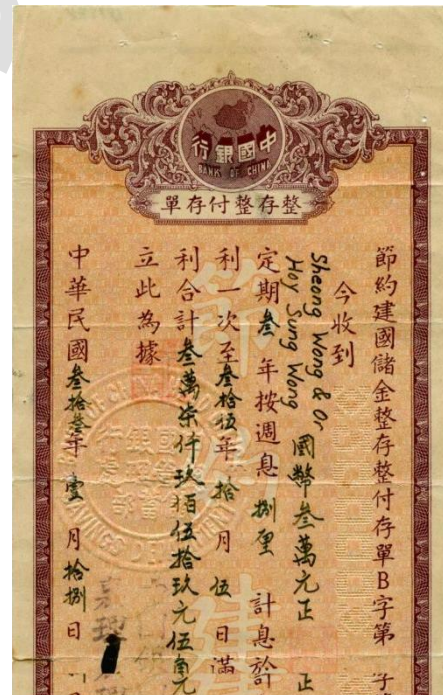 中國銀行
BANK OF CHINA
整存整付存單
節約建國儲金整存整付存單B字第
今收到
Sheong Wong & Or
Hoy Sung Wong
國幣叁萬元正
定期叁年按週息捌厘計息於
利一次至叁拾伍年拾月伍日滿
利合計叁萬柒仟玖佰伍拾玖元伍角
立此為據
中華民國叁拾叁年壹月拾捌日
節約建